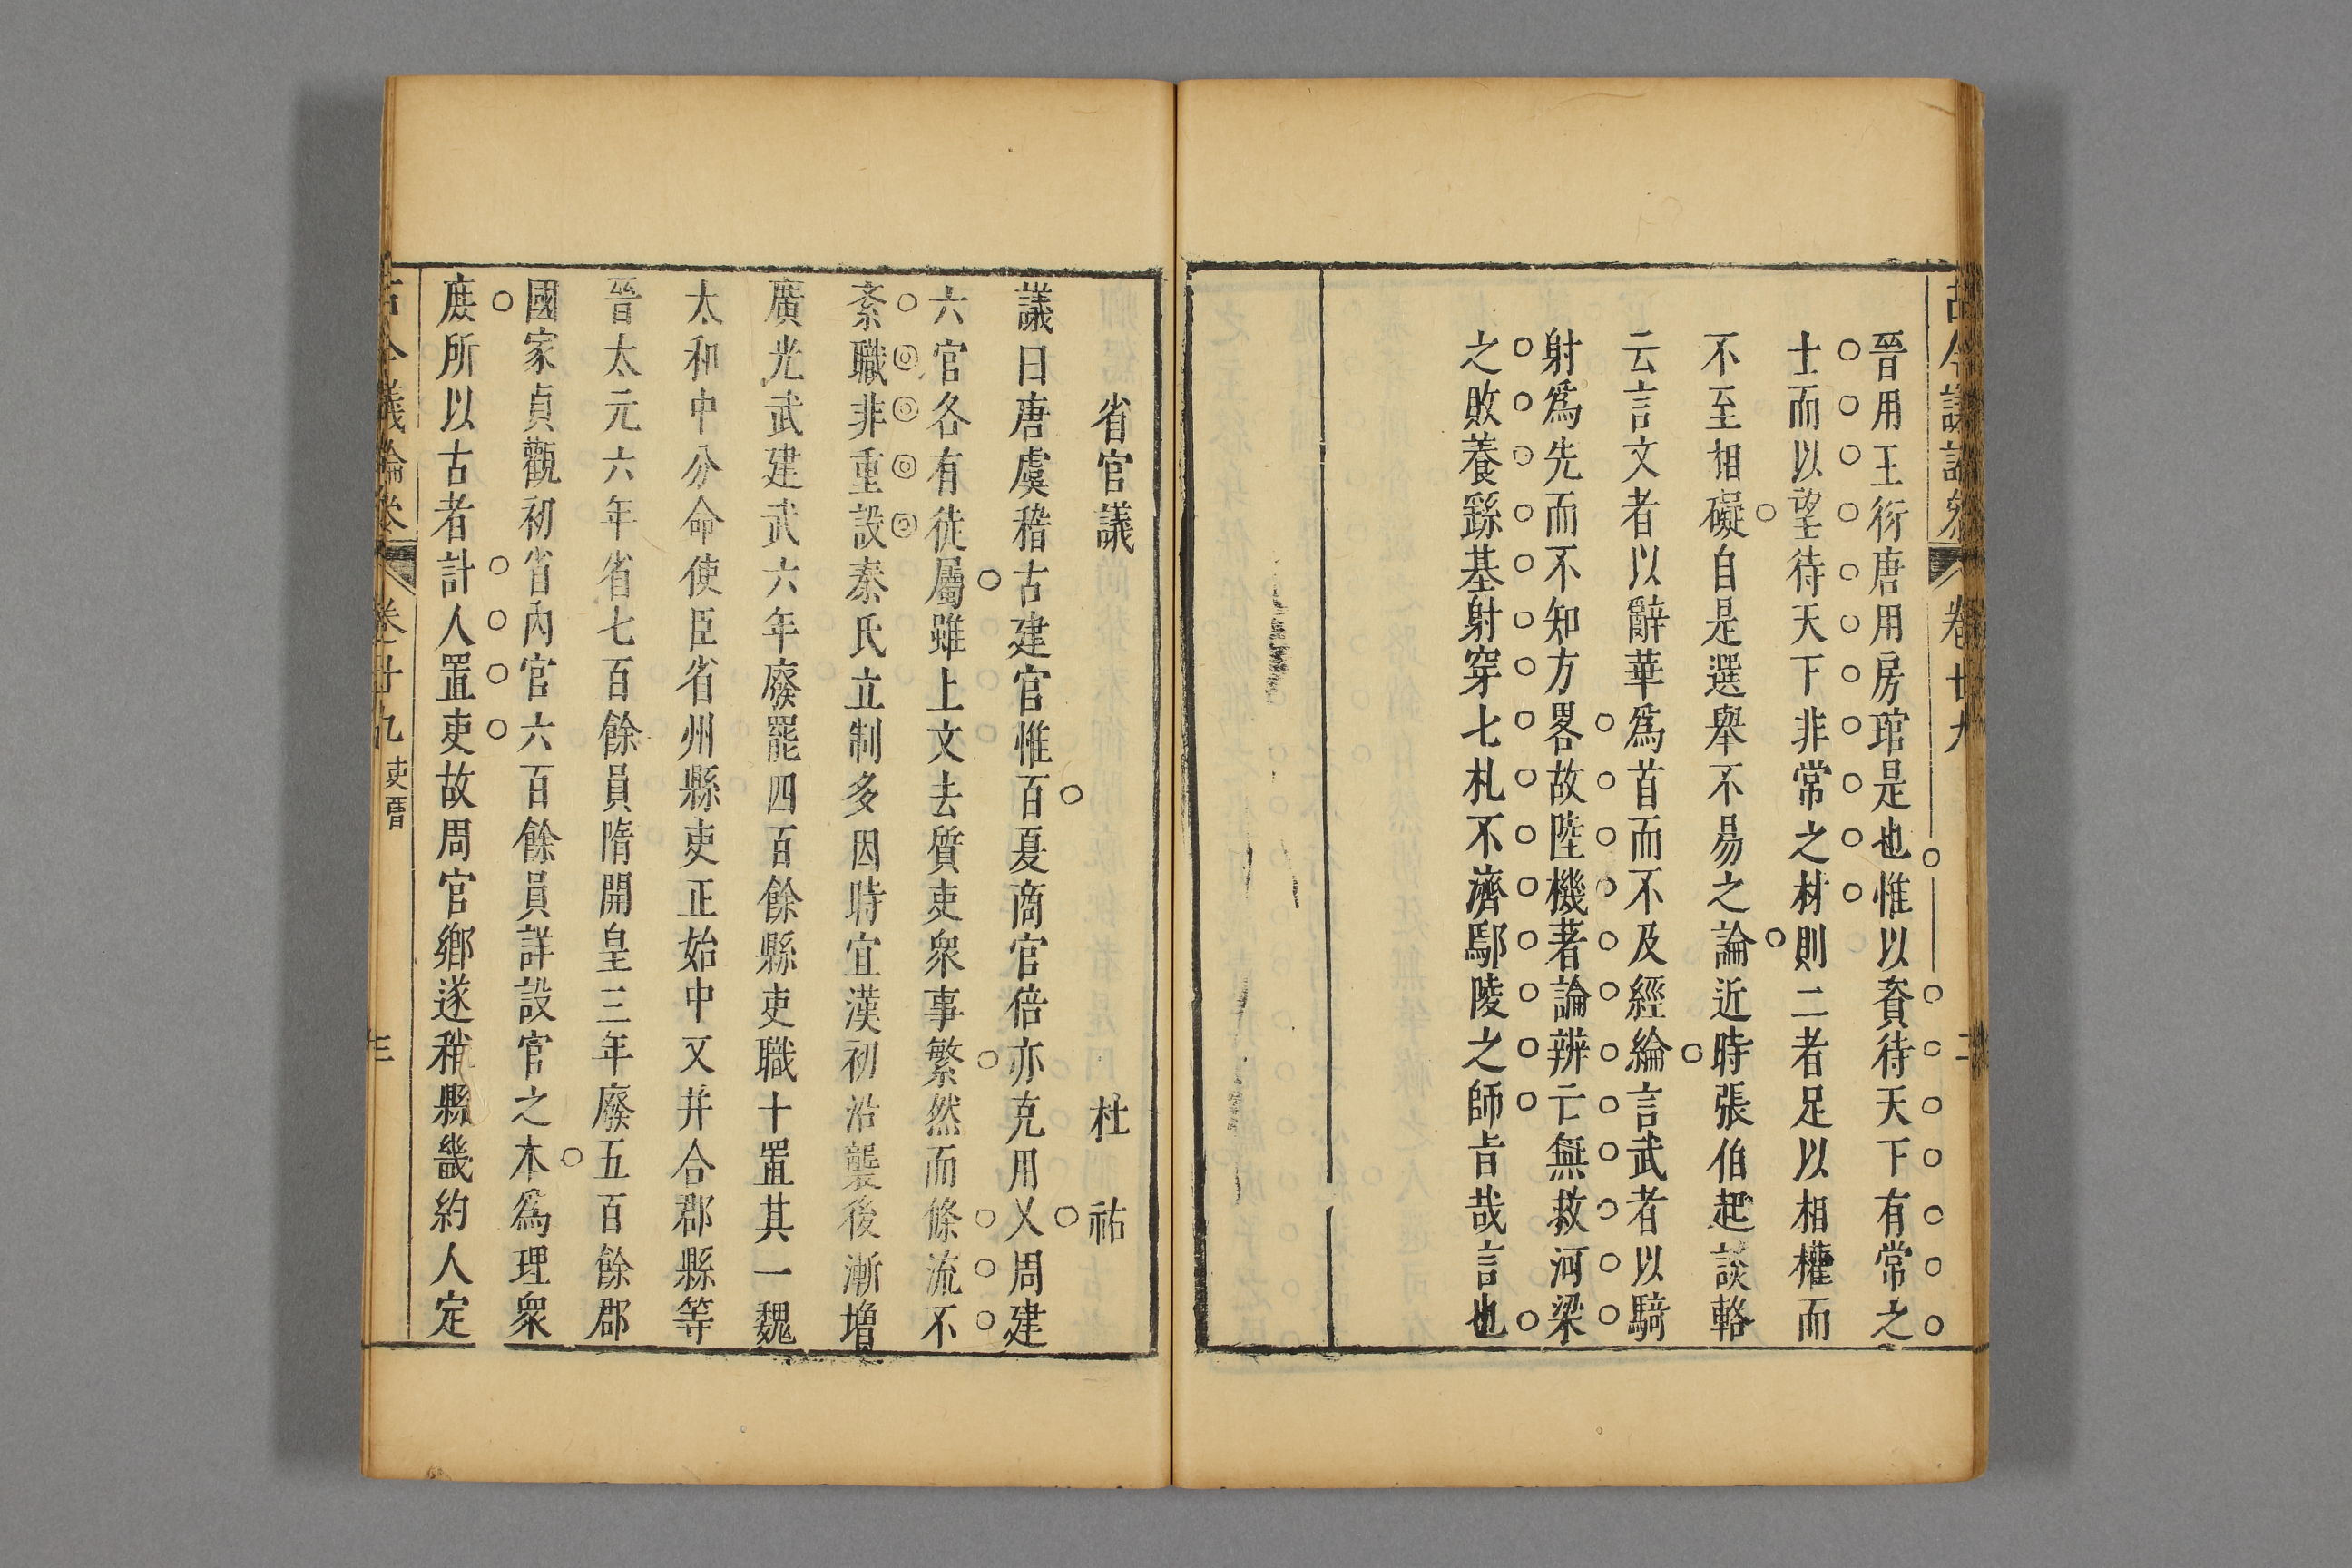 古今議論叅 卷廿九 二
晉用王衍唐用房琯是也惟以資待天下有常之
士而以望待天下非常之材則二者足以相權而
不至相礙自是選舉不易之論近時張伯起談輅
云言文者以辭華爲首而不及經綸言武者以騎
射爲先而不知方畧故陸機著論辨亡無救河梁
之敗養繇基射穿七札不濟鄢陵之師旨哉言也
省官議 杜祐
議曰唐虞稽古建官惟百夏商官倍亦克用乂周建
六官各有徒屬雖上文去質吏衆事繁然而條流不
紊職非重設秦氏立制多因時宜漢初沿襲後漸增
廣光武建武六年廢罷四百餘縣吏職十置其一魏
太和中分命使臣省州縣吏正始中又并合郡縣等
晉太元六年省七百餘員隋開皇三年廢五百餘郡
國家貞觀初省內官六百餘員詳設官之本爲理衆
庶所以古者計人置吏故周官鄉遂稍縣畿約人定
古今議論叅 卷廿九 吏曹 三